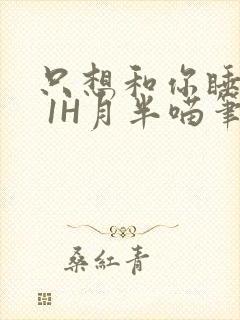 只想和你睡
1H月半喵筆
桑紅青